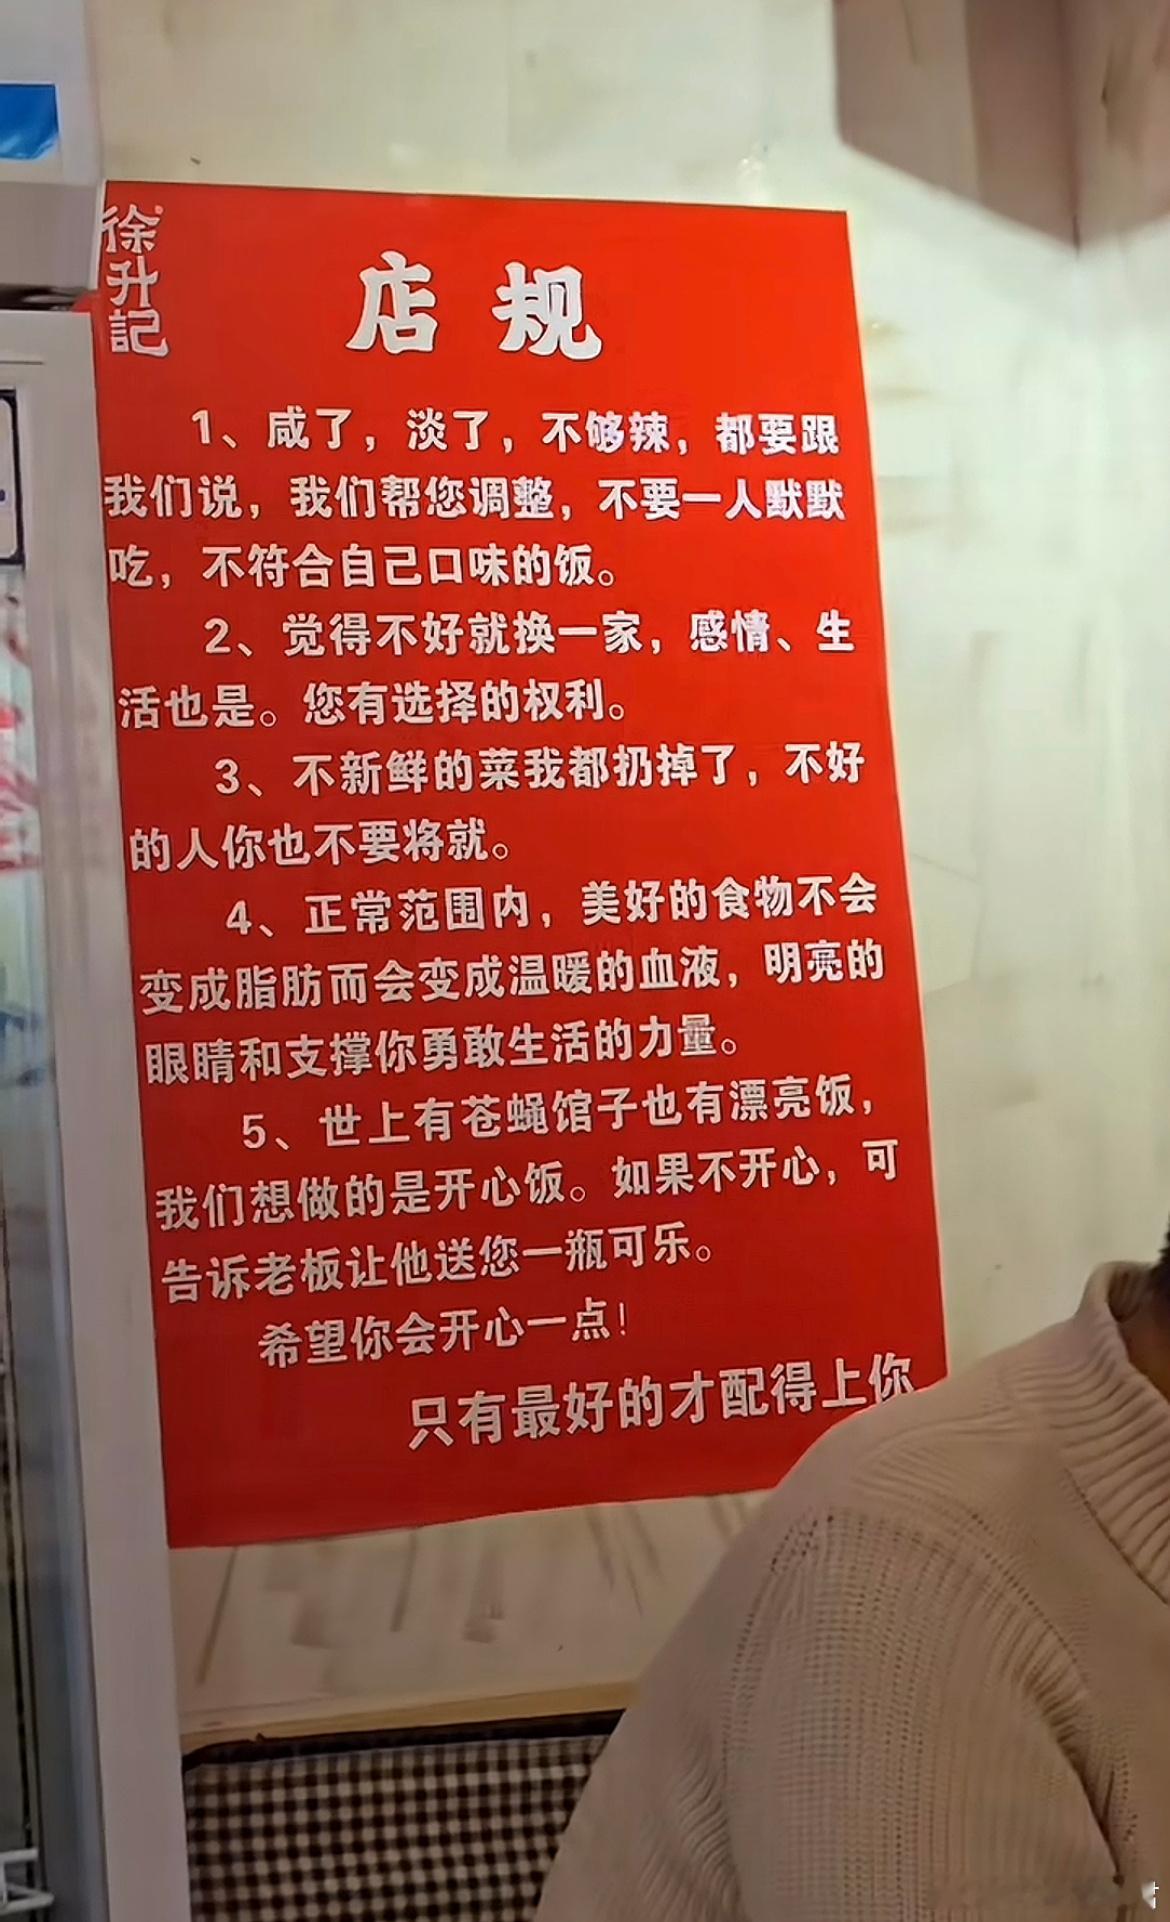 徐升記
店规
1、咸了，淡了，不够辣，都要跟
我们说，我们帮您调整，不要一人默默
吃，不符合自己口味的饭。
2、觉得不好就换一家，感情、生
活也是。您有选择的权利。
3、不新鲜的菜我都扔掉了，不好
的人你也不要将就。
4、正常范围内，美好的食物不会
变成脂肪而会变成温暖的血液，明亮的
眼睛和支撑你勇敢生活的力量。
5、世上有苍蝇馆子也有漂亮饭，
我们想做的是开心饭。如果不开心，可
告诉老板让他送您一瓶可乐。
希望你会开心一点！
只有最好的才配得上你